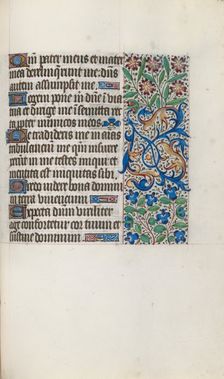 Qm pater meus et mater
mea dereliquerunt me dns
autem assumpsit me.
Legem pone m dne i via
tua et dirige me i semita rec
ta ppter inimicos meos
Ne tradideris me in aias
tribulanciu me qm insurre
xerut in me testes iniqui et
mentita est iniquitas sibi
Credo videre bona domini
in terra viuencium
Expecta dnm viriliter
age confortetur cor tuum et
sustine dominum